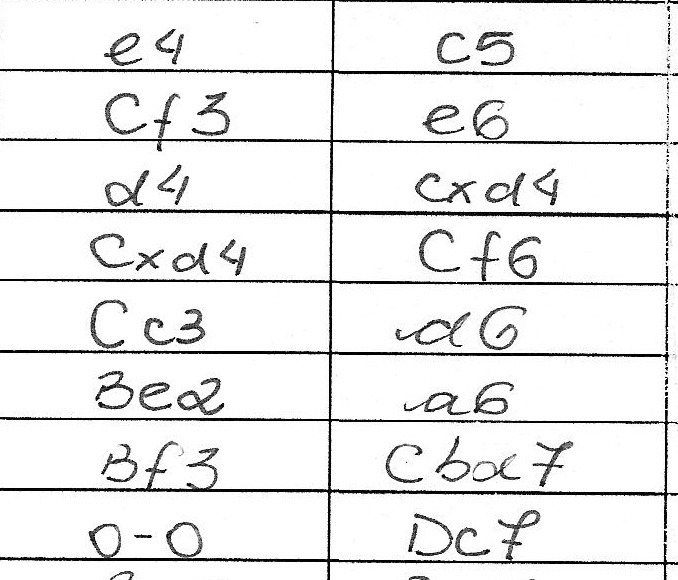 e4 c5
Cf3 e6
d4 cxd4
Cxd4 Cf6
Cc3 d6
Be2 a6
Bf3 Cbd7
0-0 Dc7